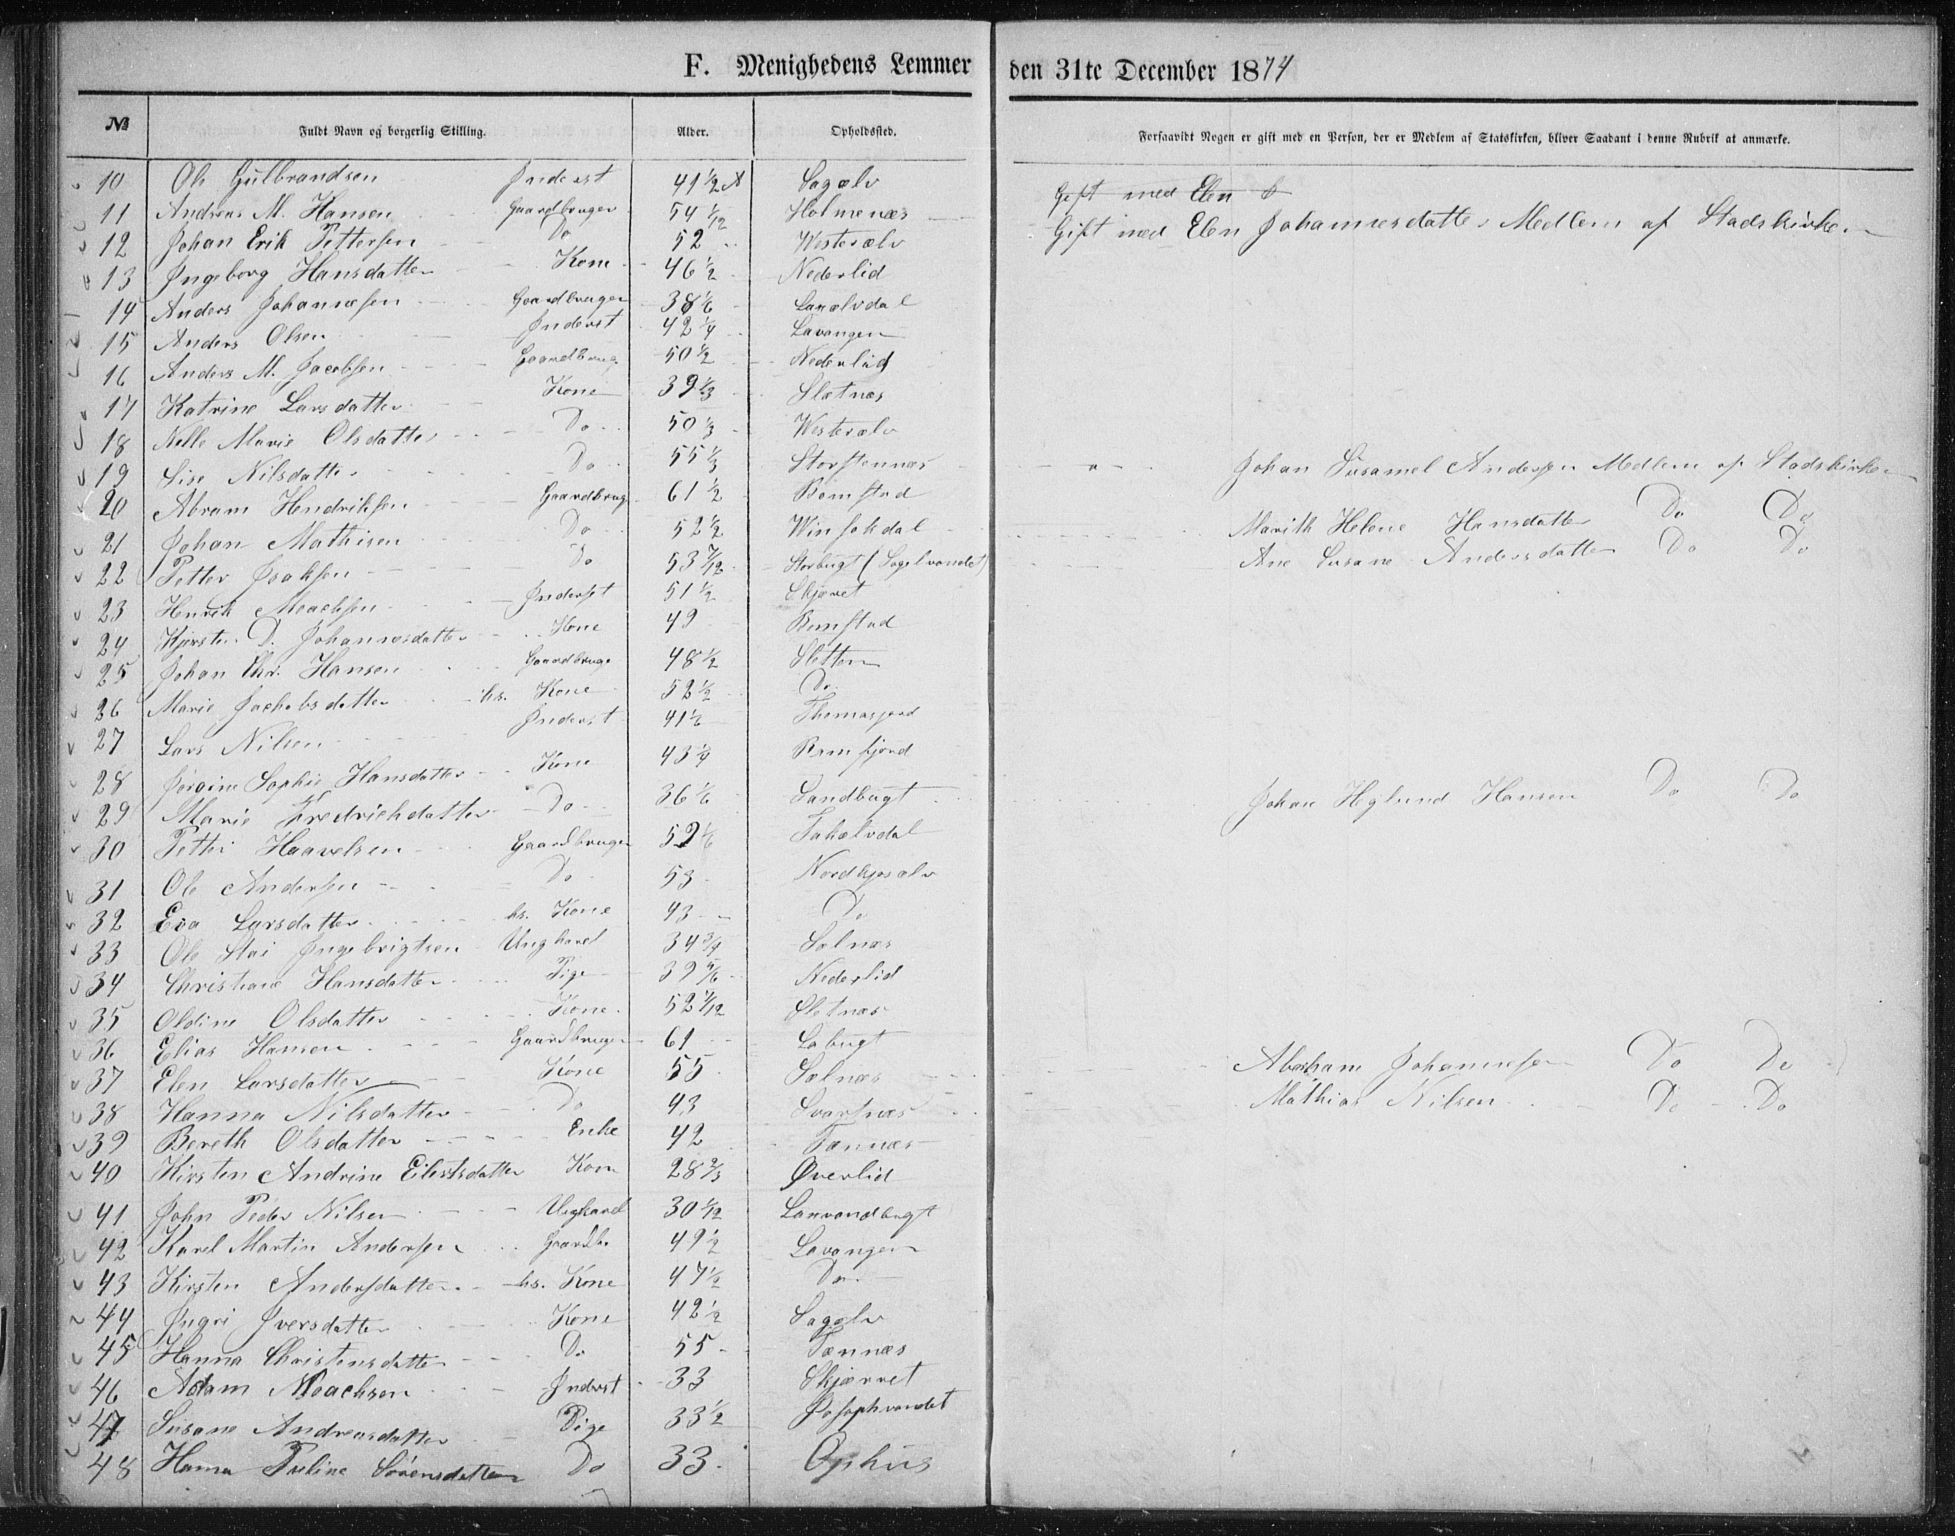 F. Menighedens Lemmer den 31te December 1874
№ Fuldt Navn og borgerlig Stilling. Alder. Opholdssted. Forsaavidt Nogen er gift med en Person, der er Medlem af Statskirken, bliver Saadant i denne Rubrik at anmærke.
10 Ole Gulbrandsen Inderst 41 1/2 Sagelv Gift med Elen
11 Andreas M. Hansen Gaardbruger 54 1/12 Holmenæs Gift med Elen Johannesdatter Medlem af Stadskirken
12 Johan Erik Pettersen Do 52 Westerelv
13 Ingeborg Hansdatter Kone 46 1/2 Nederlid
14 Anders Johannesen Gaardbruger 38 1/6
15 Anders Olsen Inderst 42 1/4 Lavangen
16 Anders M. Jacobsen Gaardbrug 50 1/2 Nederlid
17 Katrine Larsdatter Kone 39 1/3 Sletnæs
18 Nelle Marie Olsdatter Do 50 1/3 Westerelv
19 Sise Nilsdatter Do 55 1/3 Storstennæs Johan Susamel Andersen Medlem af Stadskirken
20 Abram Hendriksen Gaardbrug 61 1/2 Ramstad
21 Johan Mathisen Do 52 1/2 Marith Helene Hansdatter Do Do
22 Petter Isaksen Do 53 7/12 Storbugt (Sagelvandet) Ane Susane Andersdatter Do Do
23 Henrik Moachsen Inderst 51 1/2 Skjæret
24 Kjersten D. Johannesdatter Kone 49 Ramstad
25 Johan Chr. Hansen Gaardbruge 48 1/2 Sletten
26 Marie Jachobsdatter hs. Kone 52 1/2 Do
27 Lars Nilsen Inderst 41 1/6 Thomasjord
28 Jørgine Sophie Hansdatter Kone 43 1/4 Ramfjord
29 Marie Fredrichdatter Do 36 1/6 Sandbugt Johan Heglund Hansen Do Do
30 Petter Haavelsen Gaardbruger 52 1/6 Takelvdal
31 Ole Andersen Do 53 Nordkjoselv
32 Eva Larsdatter hs. Kone 43 Do
33 Ole Stai Ingebrigtsen Ungkarl 34 3/4 Solnæs
34 Christiane Hansdatter Pige 39 5/6 Nederlid
35 Oldine Olsdatter Kone 52 Sletnæs
36 Elias Hansen Gaardbruger 61 Labugt
37 Elen Larsdatter Kone 55 Solnæs Abraham Johannesen Do Do
38 Hanna Nilsdatter Do 43 Svartnæs Mathias Nilsen Do Do
39 Bereth Olsdatter Enke 42 Tannæs
40 Kirsten Andrine Eilertsdatter Kone 28 2/3 Øverlid
41 John Peder Nilsen Ungkarl 30 1/12 Lanvandbugt
42 Karel Martin Andersen Gaardbr 49 1/2 Lavangen
43 Kirsten Andersdatter hs. Kone 47 1/2 Do
44 Ingri Iversdatter Kone 42 1/2 Sagelv
45 Hanna Christensdatter Do 55 Tennæs
46 Adam Moachsen Inderst 33 Skjærret
47 Susane Andreasdatter Pige 33 1/2 Josephvandet
48 Hanna Puline Sørensdatter Do 33 Ophus